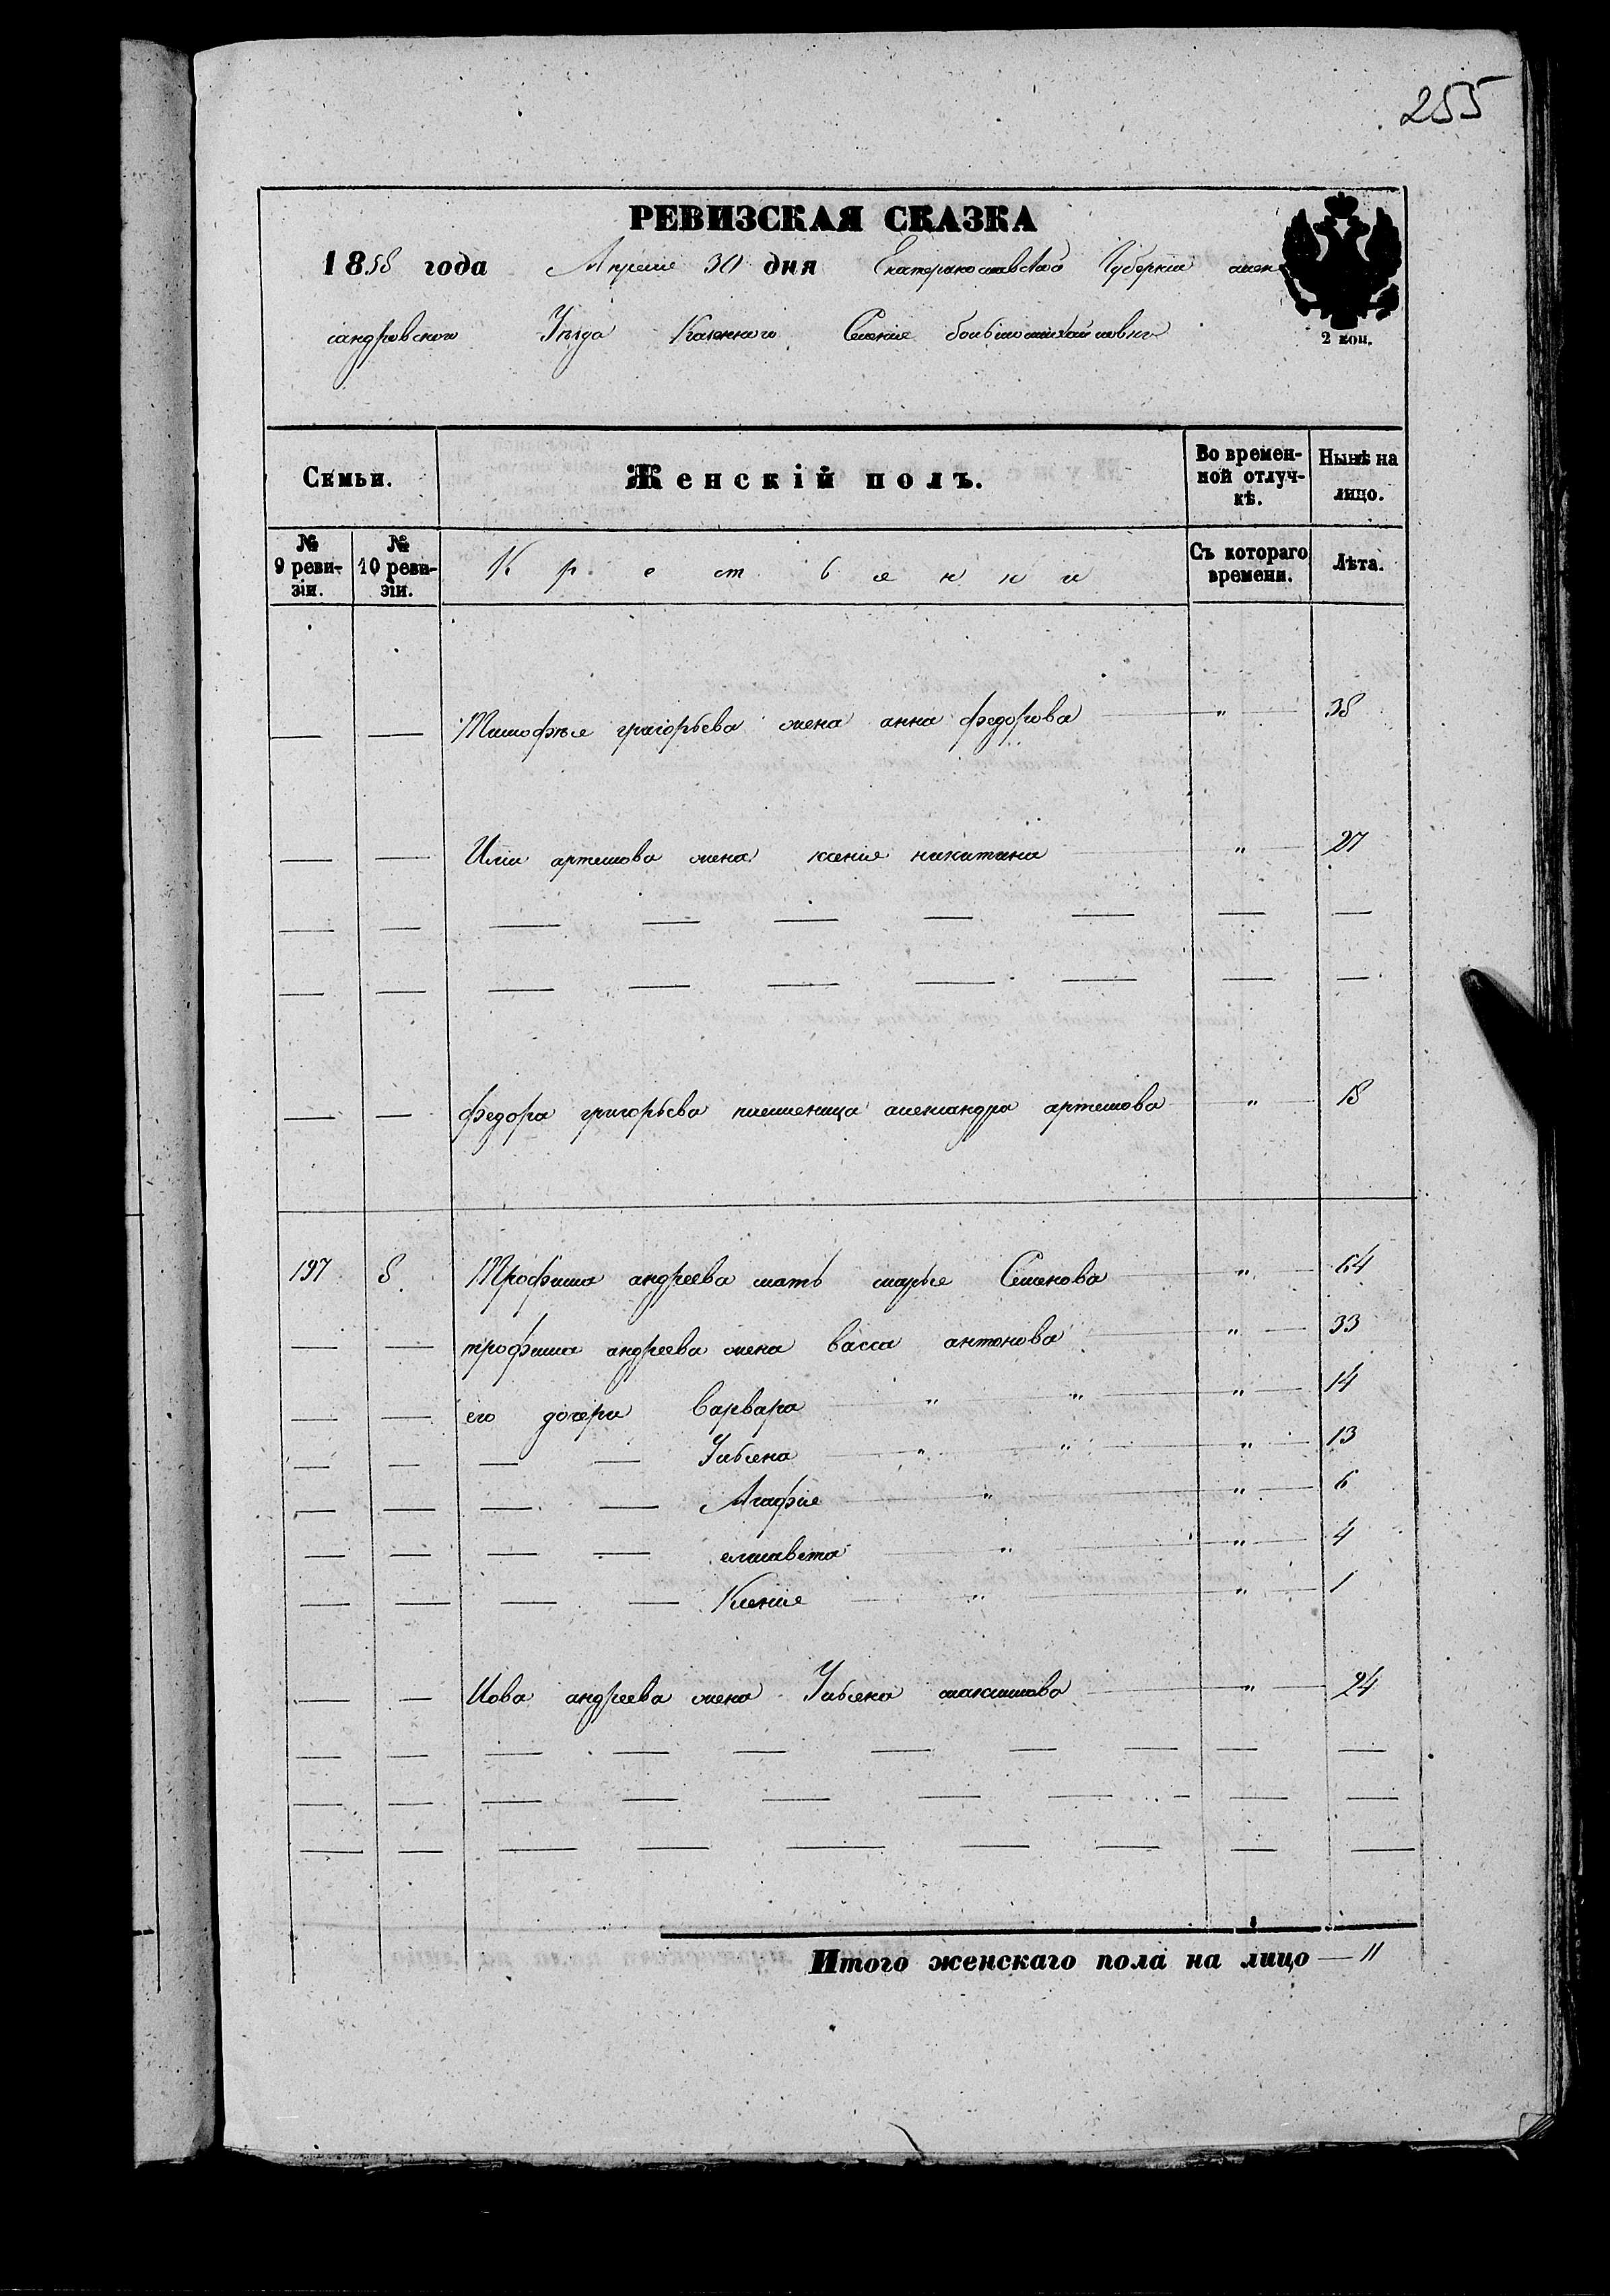 255
РЕВИЗСКАЯ СКАЗКА
1858 года Апреля 30 дня Екатеринославской Губернии алек
сандровского Уѣзда Казенного Селения большемихайловки
2 коп.
Семьи. Женскій полъ. Во времен-ной отлуч-кѣ. Нынѣ на лицо.
№ 9 реви-зіи. № 10 реви-зіи. Крестьянки Съ котораго времени. Лѣта.
— — Тимофея григорьева жена анна федорова — " — 38
— — Ильи артемова жена ксения никитина — " — 27
— — — — — — — — —
— — — — — — — — —
— — федора григорьева племеница александра артемова — " — 18
197 8. Трофима андреева мать марья Семенова — " — 64
— — трофима андреева жена васса антонова — " — 33
— — его дочери Варвара — " — " — " — 14
— — — — Ульяна — " — " — " — 13
— — — — Агафия — " — " — 6
— — — — елисавета — " — " — 4
— — — — Ксения — " — " — 1
— — Иова андреева жена Ульяна максимова — " — 24
— — — — — — — — — —
— — — — — — — — — —
— — — — — — — — —
Итого женскаго пола на лицо — 11